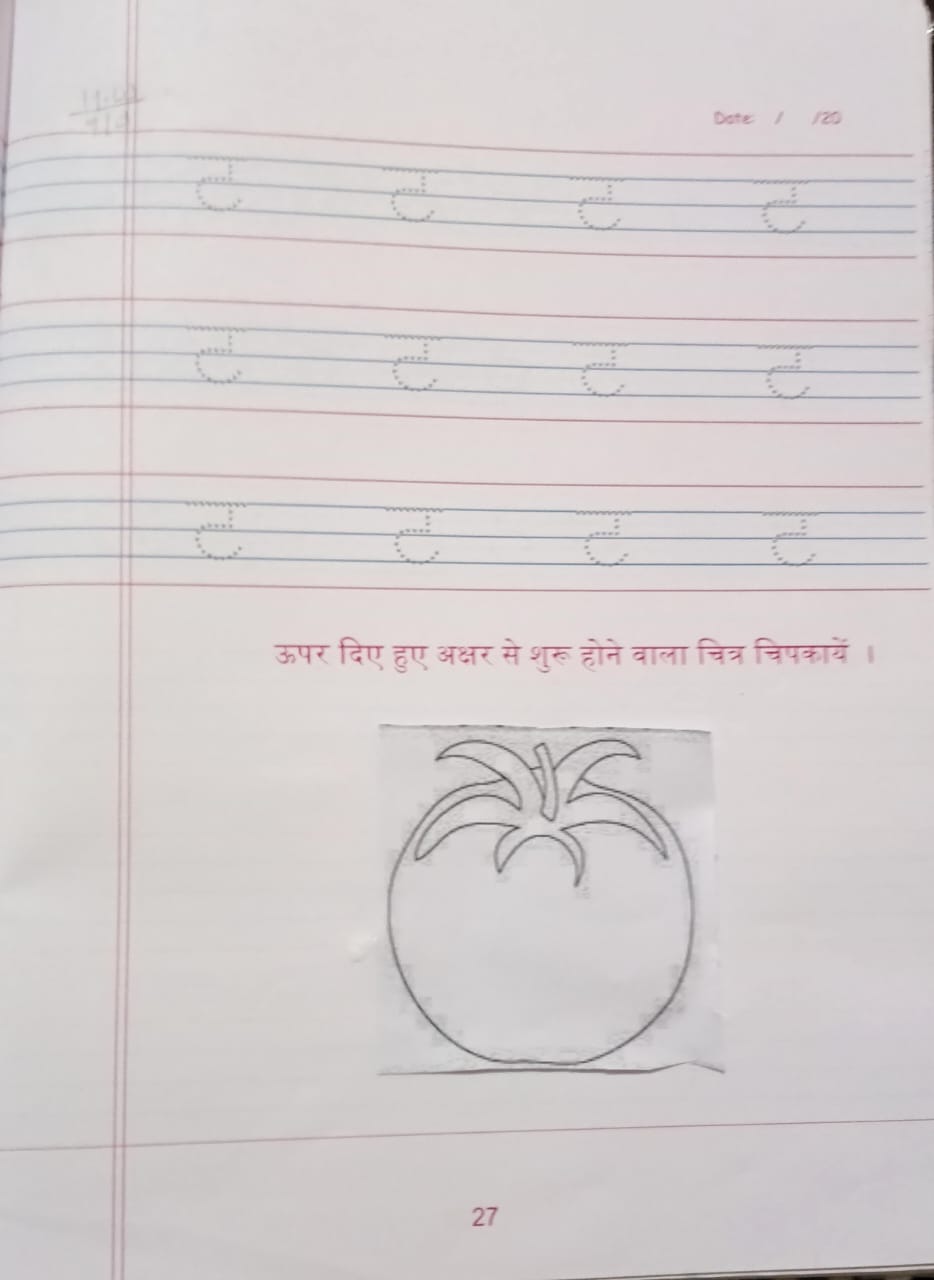 Date / /20
ट ट ट ट
ट ट ट ट
ट ट ट ट
ऊपर दिए हुए अक्षर से शुरू होने वाला चित्र चिपकायें ।
27